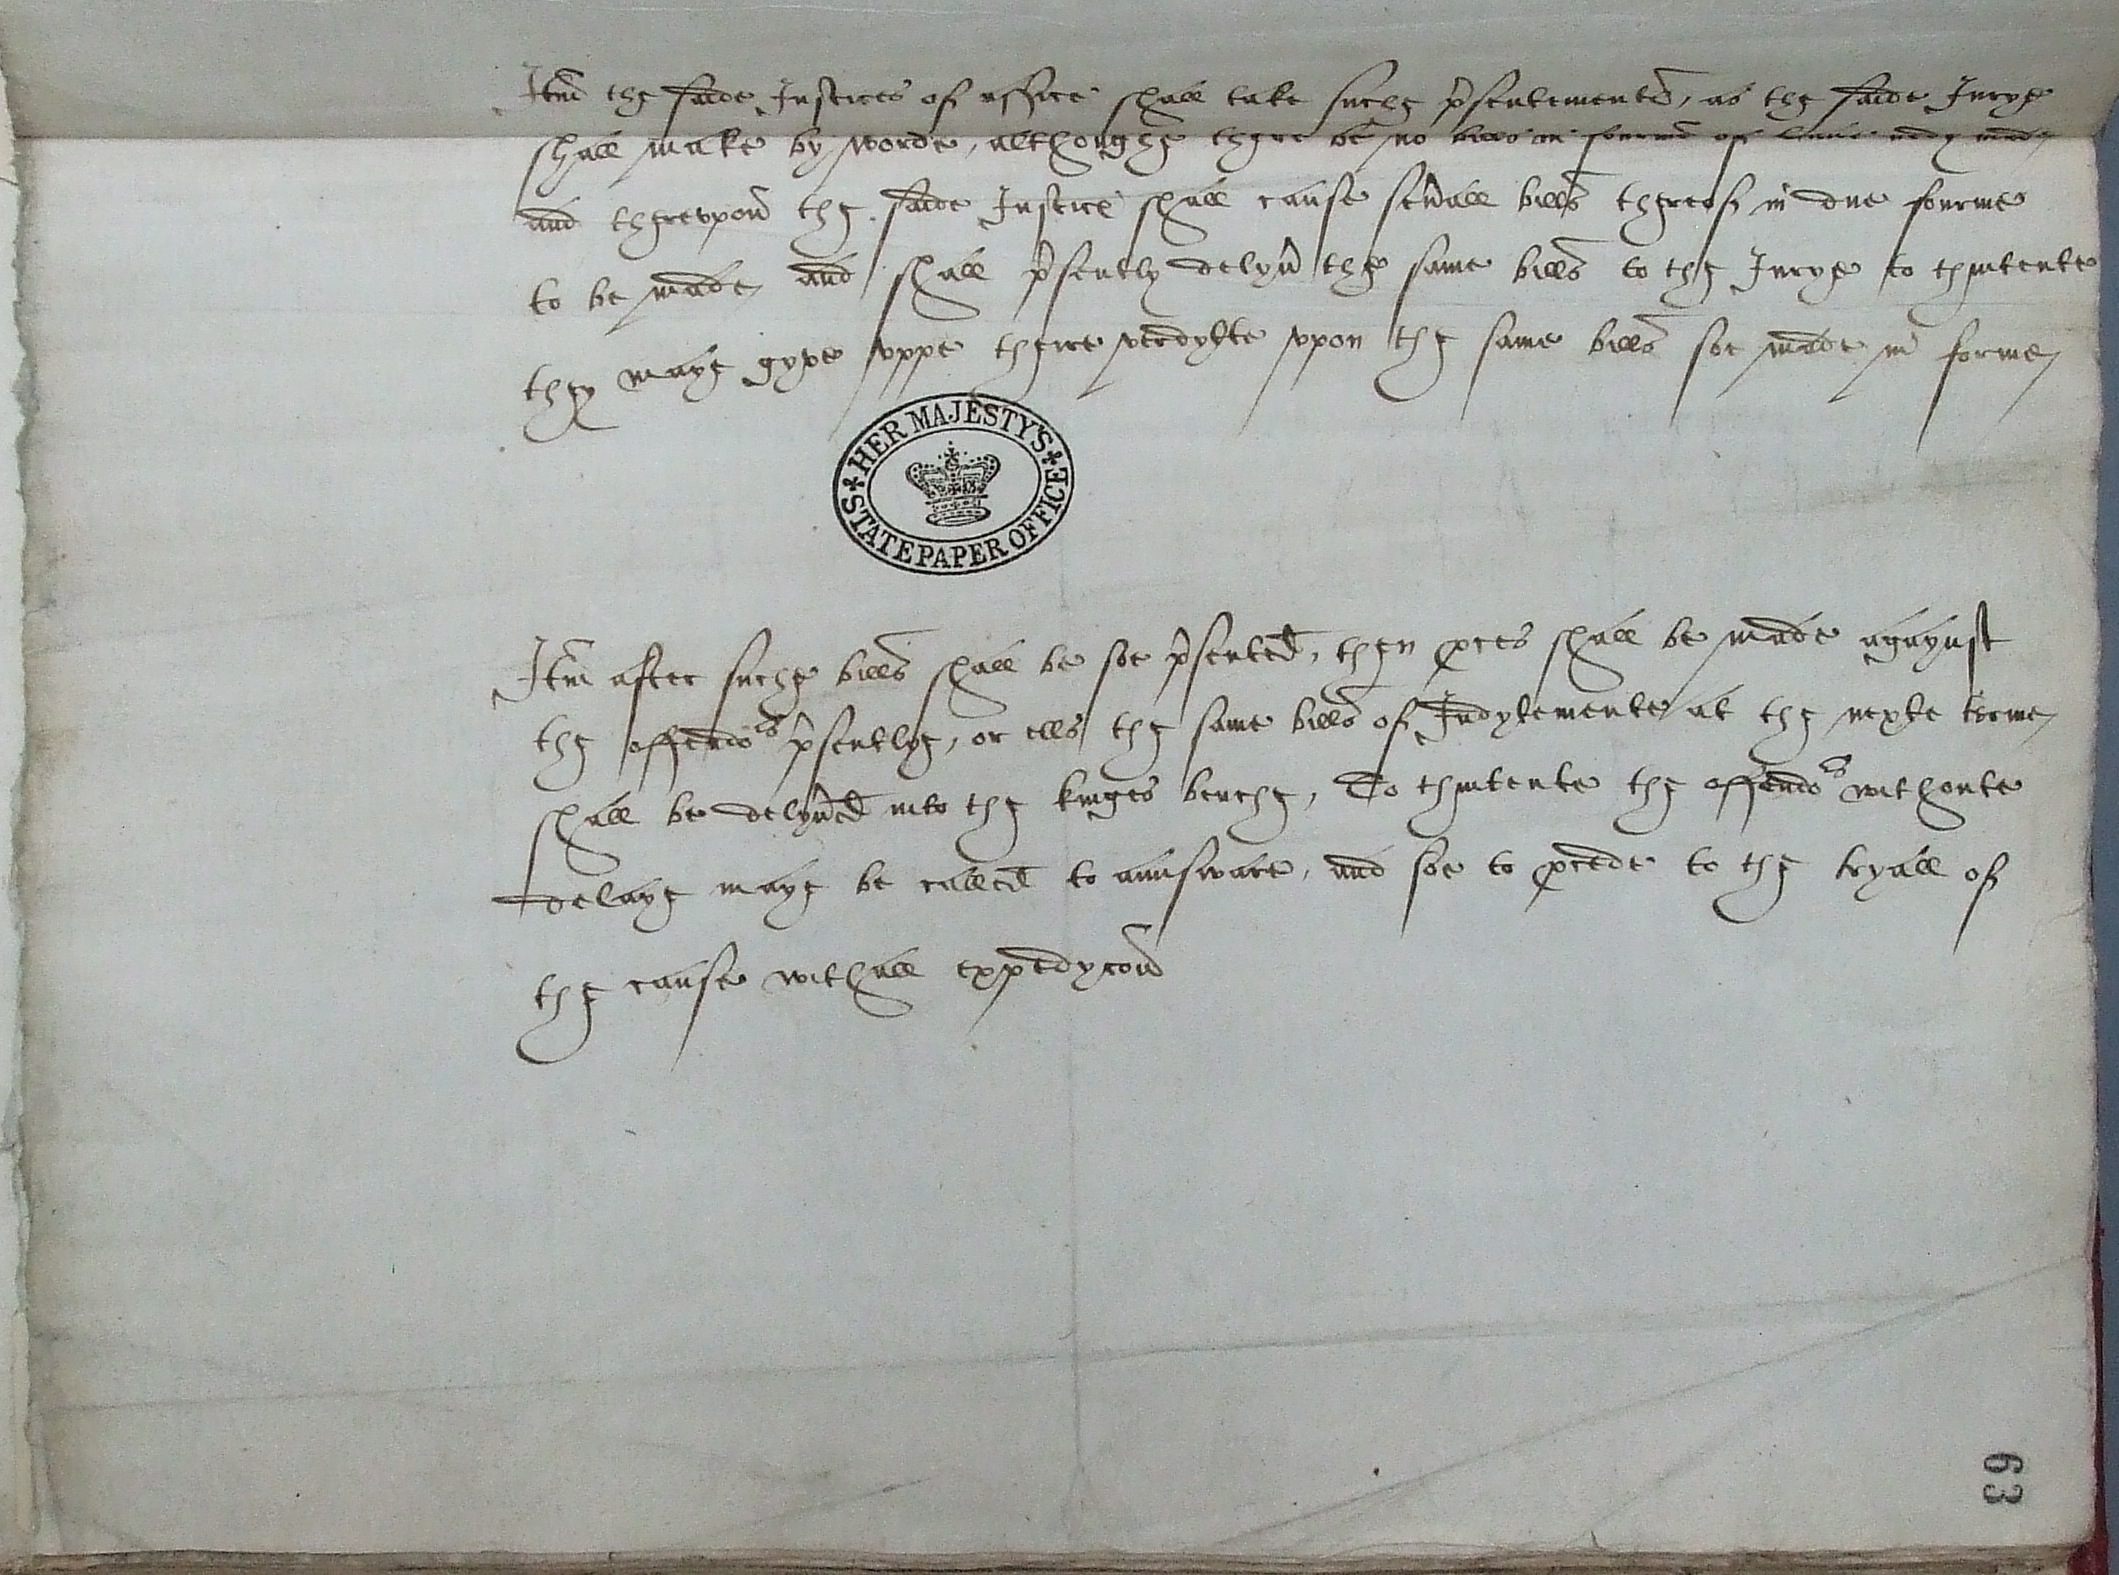 Itm̃ the saide Justices of assice shall take suche p̃sentementꝭ, as the saide Jurye
shall make by worde, althoughe there be no bills in fourme of lawe redy made
and therevpoñ the saide Justicꝭ shall cause seũall bills thereof in due fourme
to be made and shall p̃sently delyũ the same bills to the Jurye to thintente
they maye gyve vppe theire verdykte vpon the same bills soe made in forme
HER MAJESTY'S STATE PAPER OFFICE
Itm̃ after suche bills shall be soe p̃sented, then ꝓces shall be made agaynst
the offendors p̃sentlye, or ells the same bills of Indytemente at the nexte terme
shall be delyũed into the kinges benche, To thintente the offendors withoute
delaye maye be called to aunsware, and soe to ꝓcede to the tryall of
the cause withall expedycoñ
63